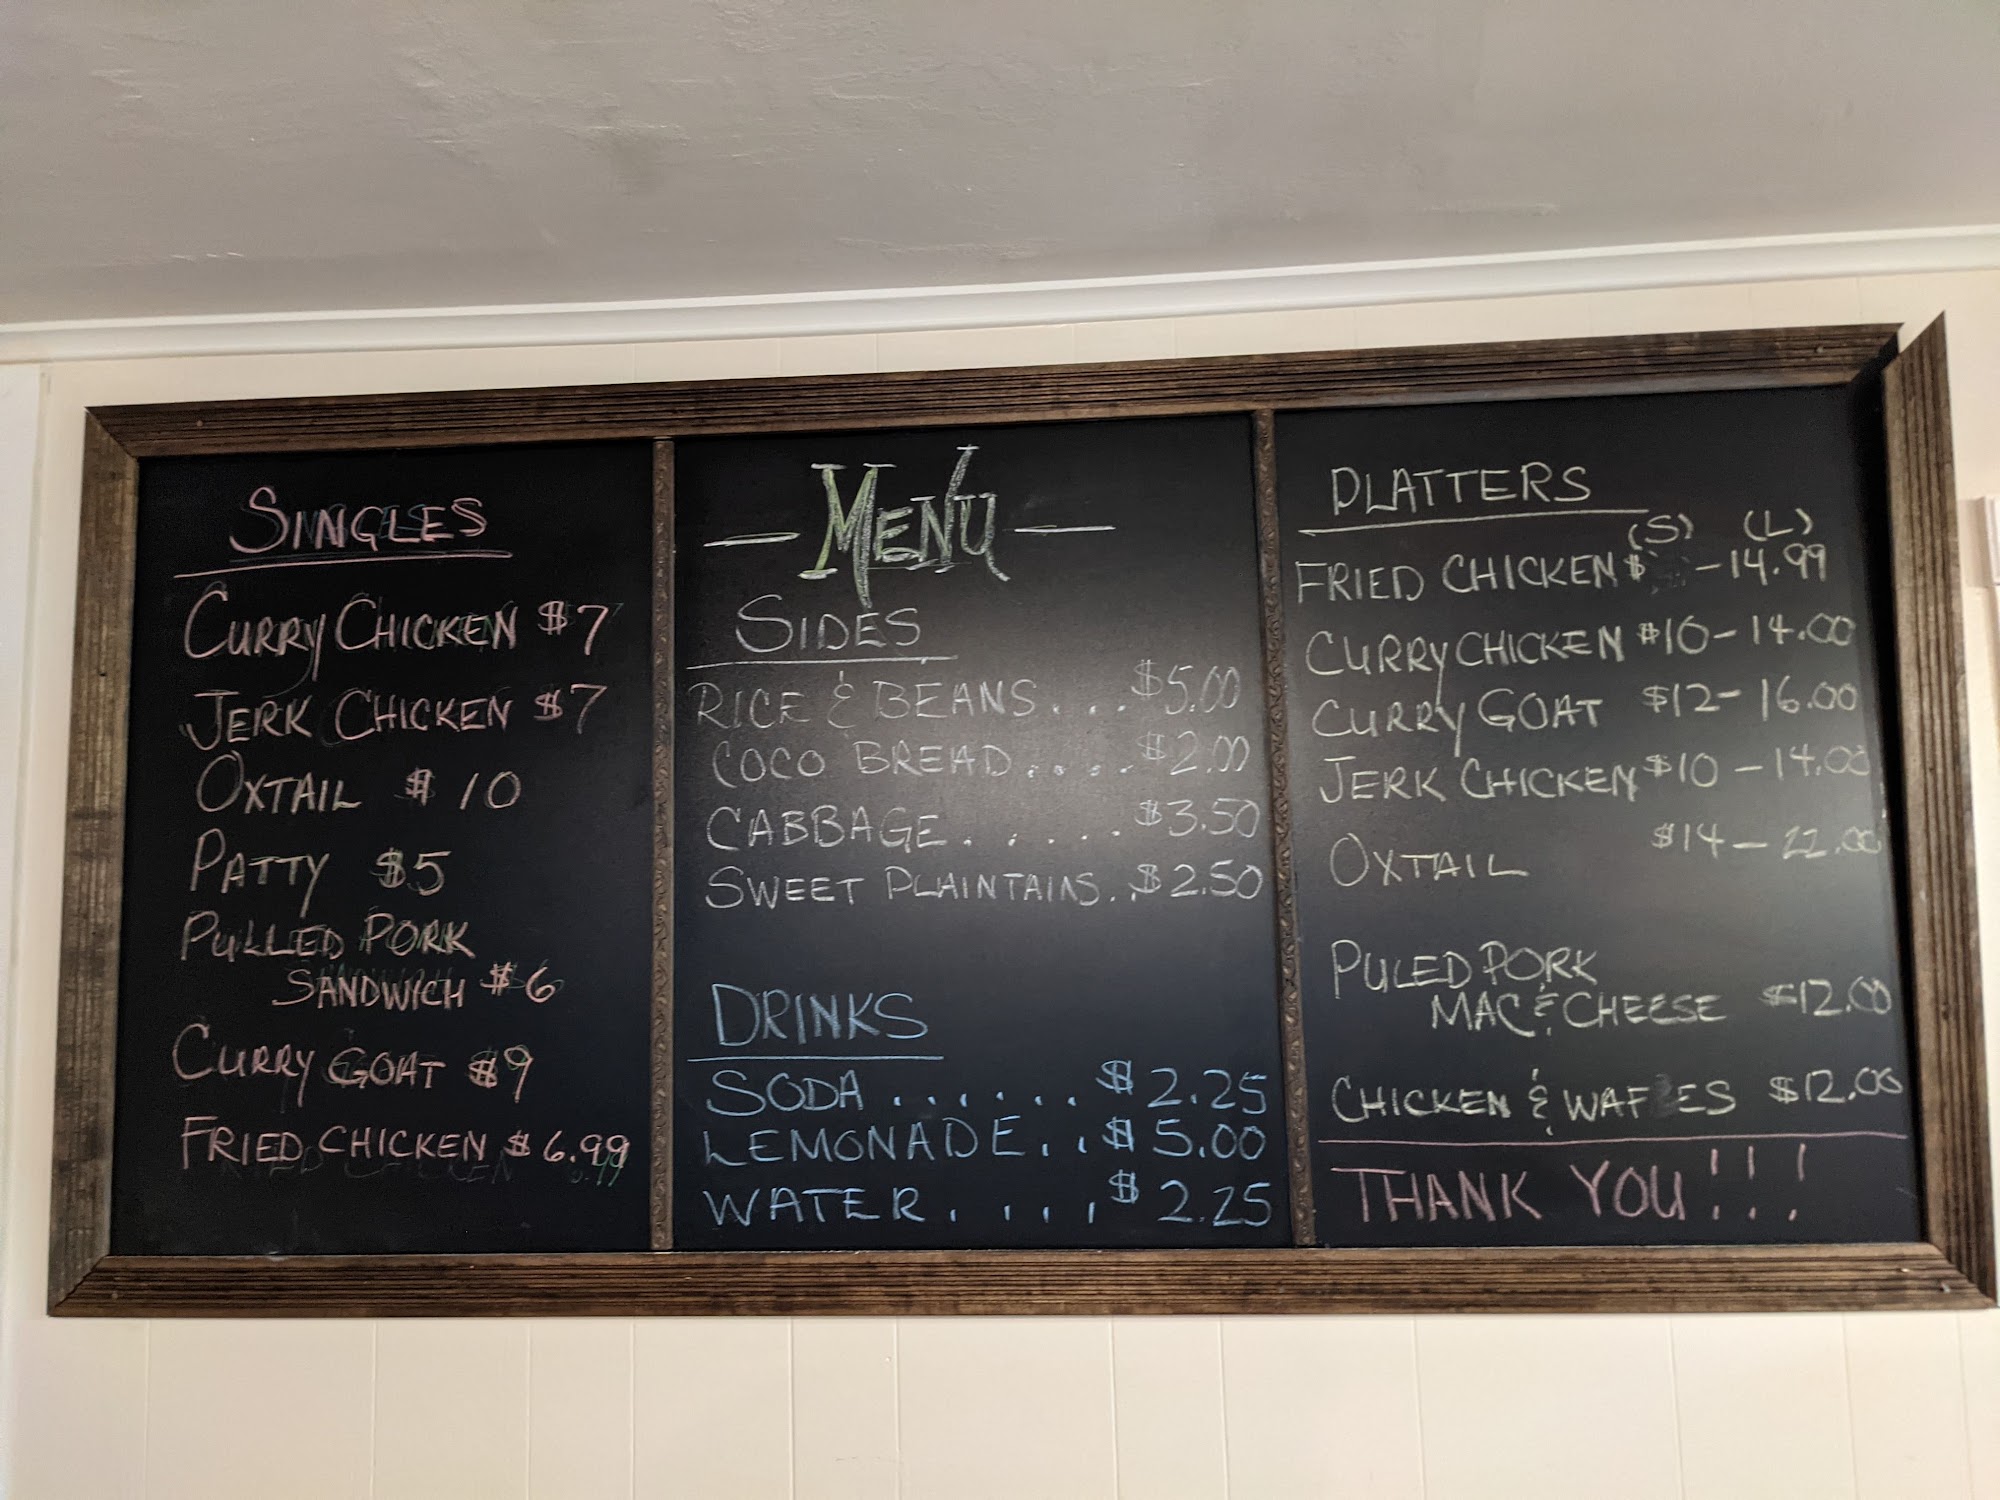 SINGLES
CURRY CHICKEN $7
JERK CHICKEN $7
OXTAIL $10
PATTY $5
PULLED PORK
SANDWICH $6
CURRY GOAT $9
FRIED CHICKEN $6.99
— MENU —
SIDES
RICE & BEANS...$5.00
COCO BREAD.....$2.00
CABBAGE......$3.50
SWEET PLAINTAINS..$2.50
DRINKS
SODA......$2.25
LEMONADE..$5.00
WATER....,$2.25
PLATTERS
(S) (L)
FRIED CHICKEN $ -14.99
CURRY CHICKEN $10-14.00
CURRY GOAT $12-16.00
JERK CHICKEN $10-14.00
OXTAIL $14-22.00
PULED PORK
MAC & CHEESE $12.00
CHICKEN & WAFLES $12.00
THANK YOU!!!